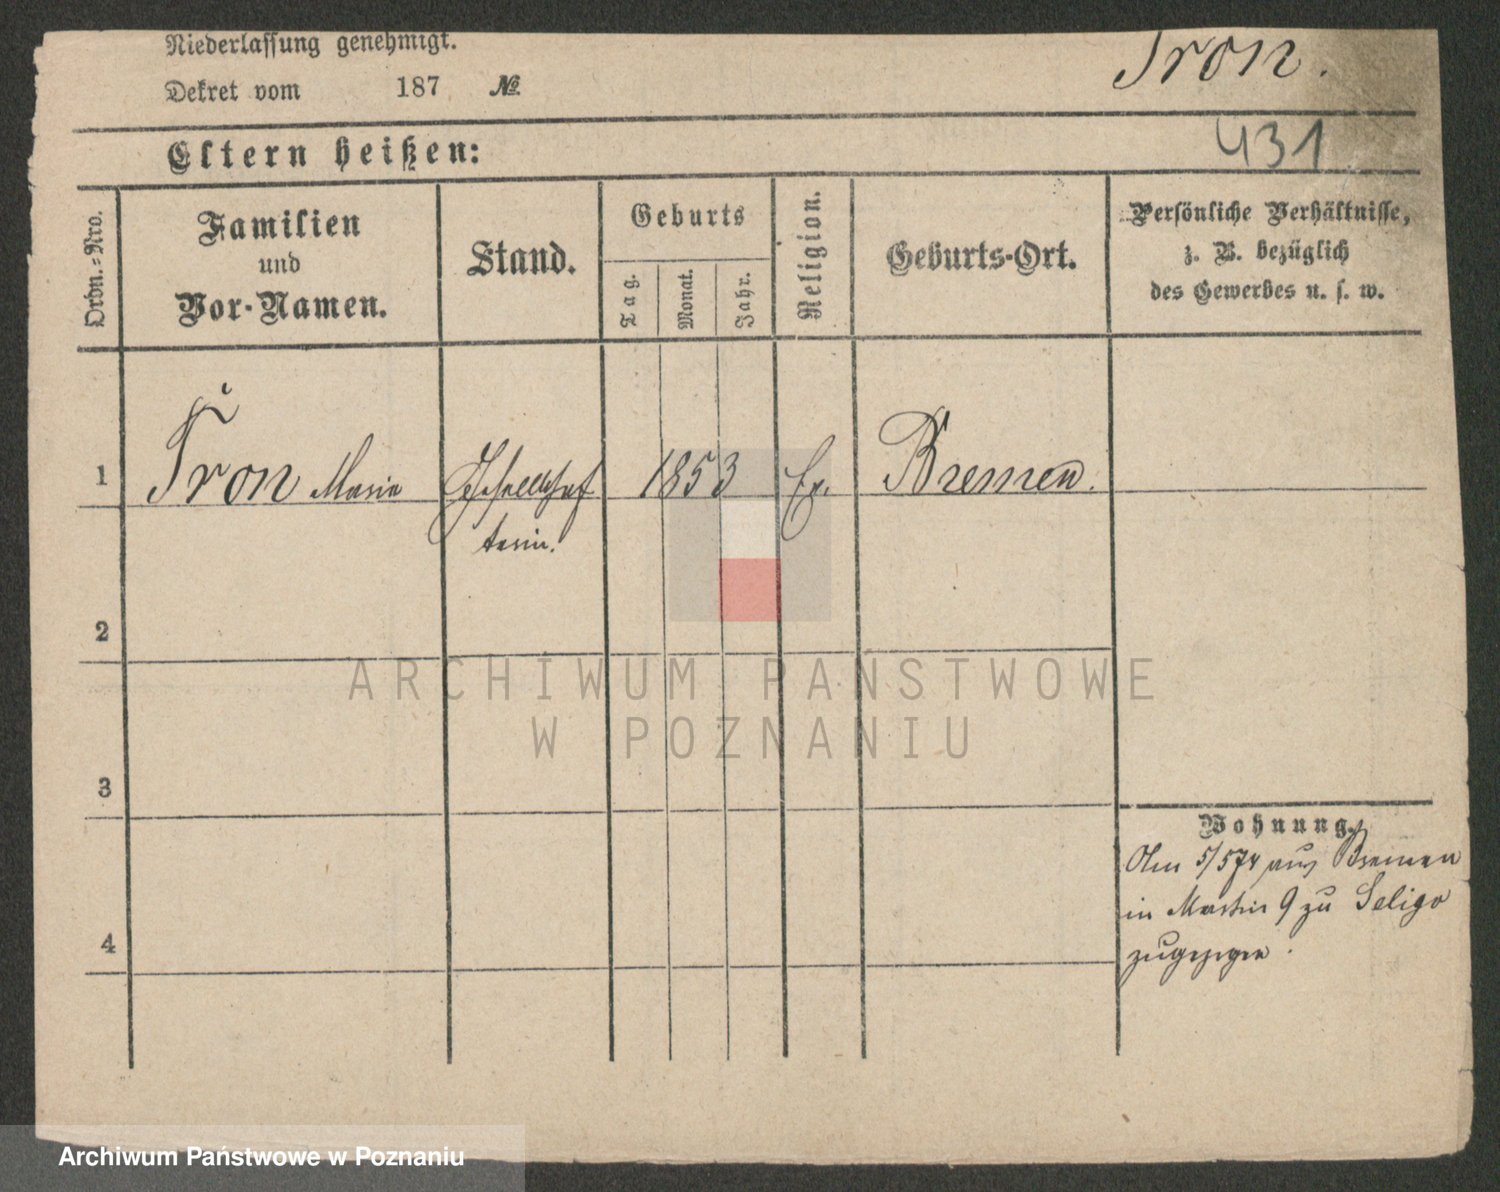 Niederlassung genehmigt.
Dekret vom 187 №
Tron.
Eltern heißen:
431
Ordn.-Nro.
Familien
und
Vor-Namen.
Stand.
Geburts
Tag.
Monat.
Jahr.
Religion.
Geburts-Ort.
Persönliche Verhältnisse,
z. B. bezüglich
des Gewerbes u. s. w.
1 Tron Marie Gesellschaf 1853 Ev. Bremen.
terin.
2
3
4
Wohnung.
Am 5/5 74 aus Bremen
in Martin 9 zu Seligo
zugezogen.
ARCHIWUM PAŃSTWOWE
W POZNANIU
Archiwum Państwowe w Poznaniu